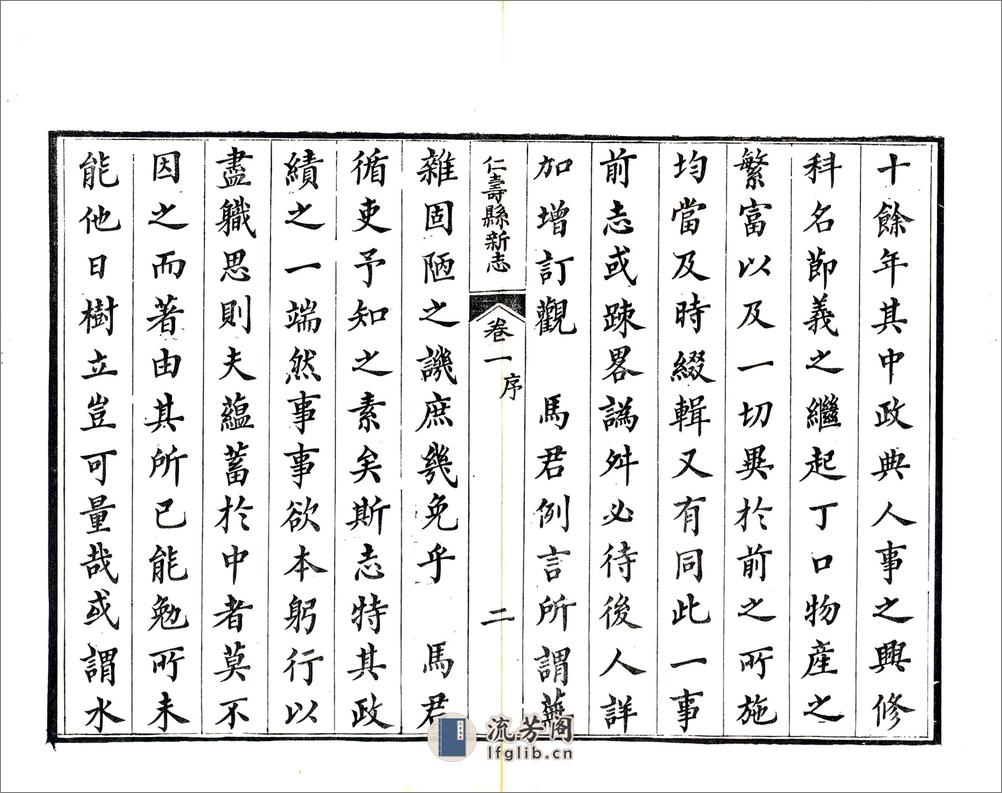 十餘年其中政典人事之興修
科名節義之繼起丁口物產之
繁富以及一切異於前之所施
均當及時綴輯又有同此一事
前志或踈畧譌舛必待後人詳
加增訂觀 馬君例言所謂蕪
仁壽縣新志 卷一 序 二
雜固陋之譏庶幾免乎 馬君
循吏予知之素矣斯志特其政
績之一端然事事欲本躬行以
盡職思則夫蘊蓄於中者莫不
因之而著由其所已能勉所未
能他日樹立豈可量哉或謂水
流芳阁
lfglib.cn